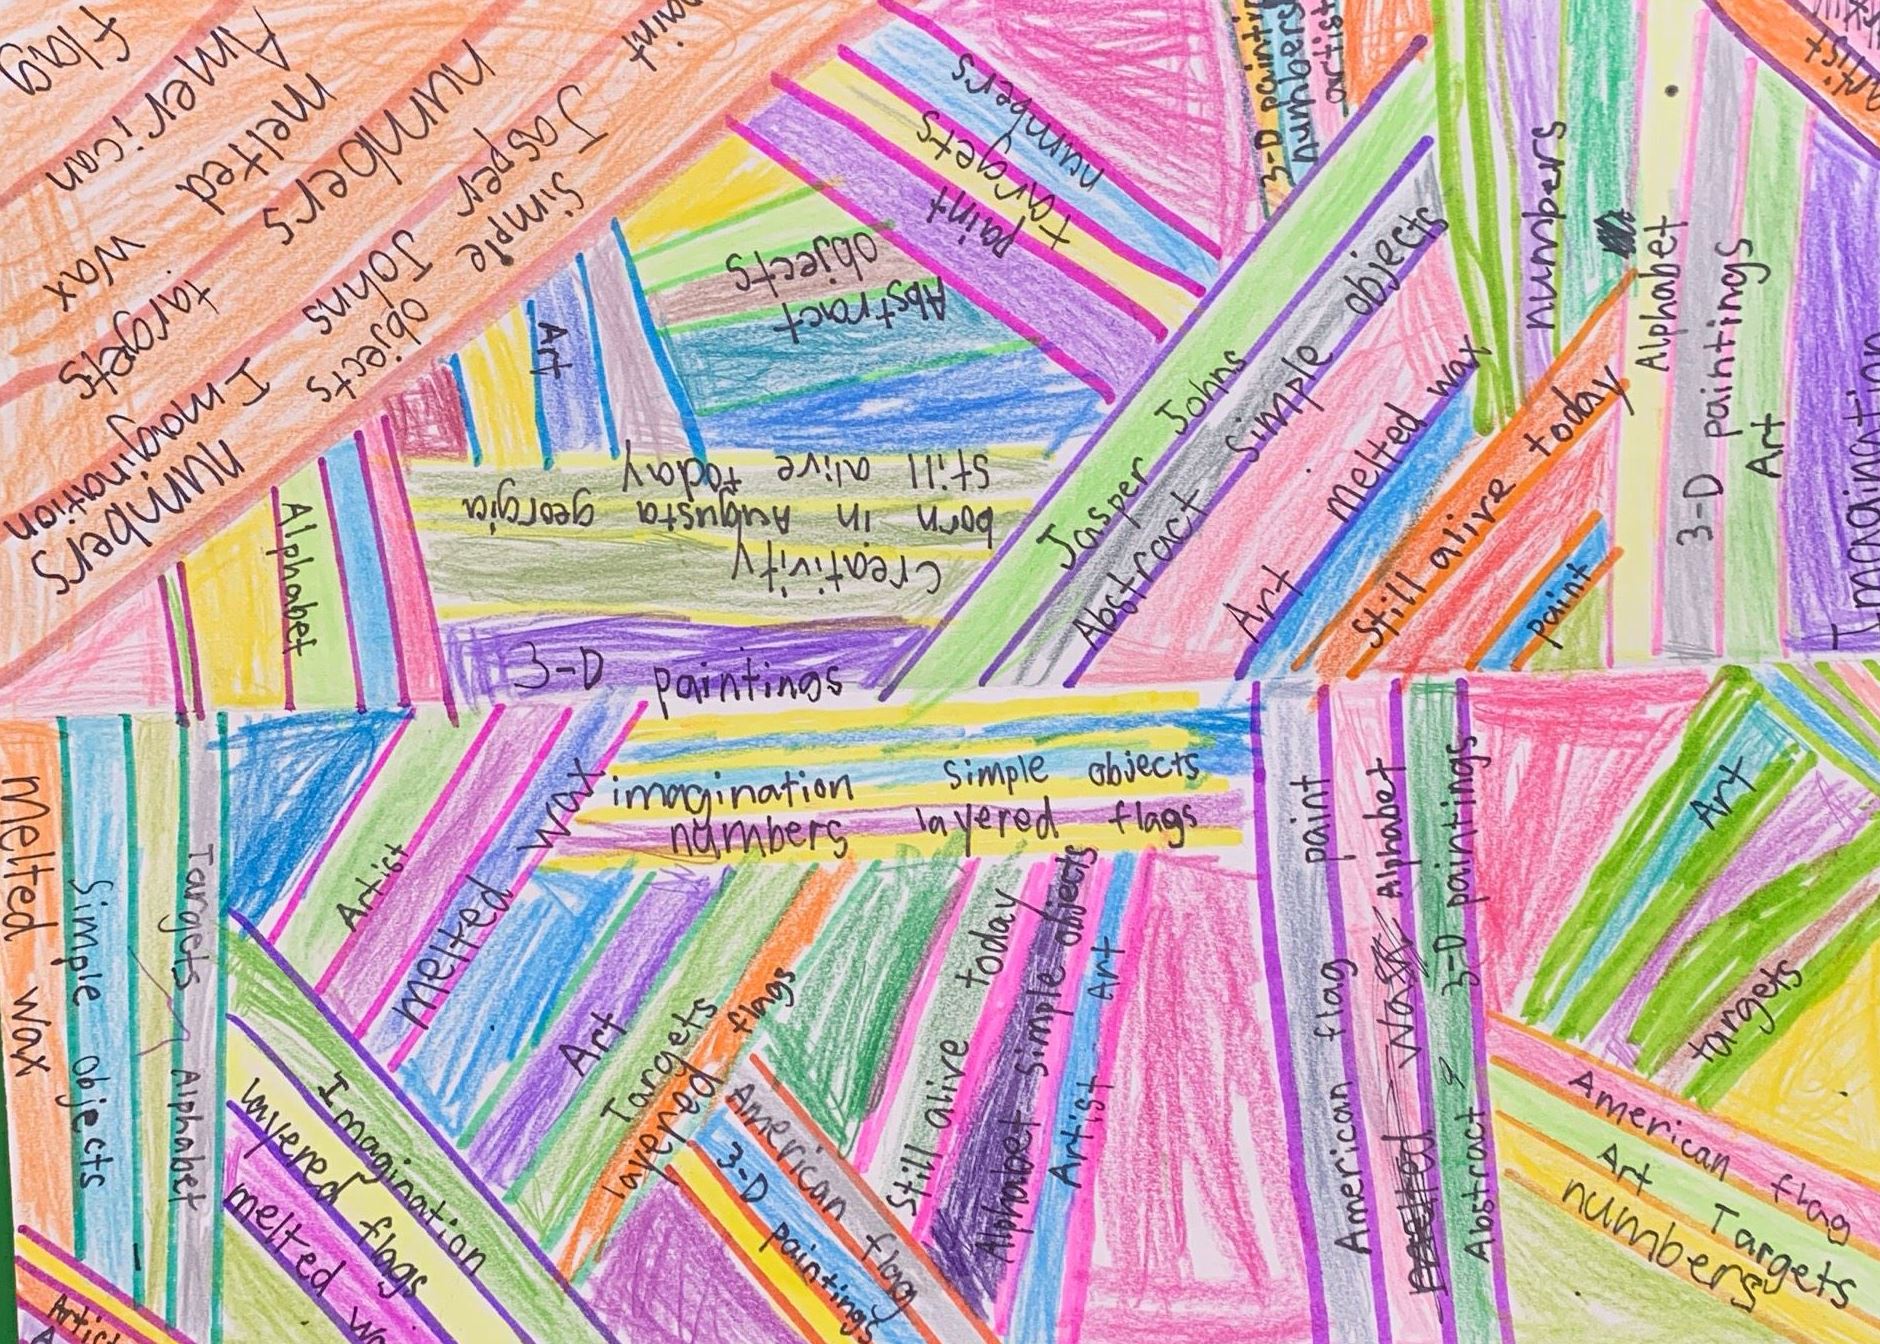 flag
American
melted wax
numbers targets
Jasper Johns Imagination
simple objects
numbers
paint
numbers
targets
paint
objects
Abstract
Art
still alive today
born in Augusta georgia
creativity
Alphabet
3-D paintings
3-D painti
numbers
artist
Jasper Johns
Abstract simple objects
Art melted wax
Still alive today
paint
numbers
Alphabet
3-D paintings
Art
Imagination
melted wax
Simple objects
Targets / Alphabet
Artist
melted wax
imagination simple objects
numbers layered flags
Art
Targets
layered flags
Imagination
layered flags
melted wa
American flag
3-D paintings
Still alive today
Alphabet simple objects
Artist Art
American flag paint
Alphabet
Abstract & 3-D paintings
Art
targets
American flag
Art Targets
numbers
Artist